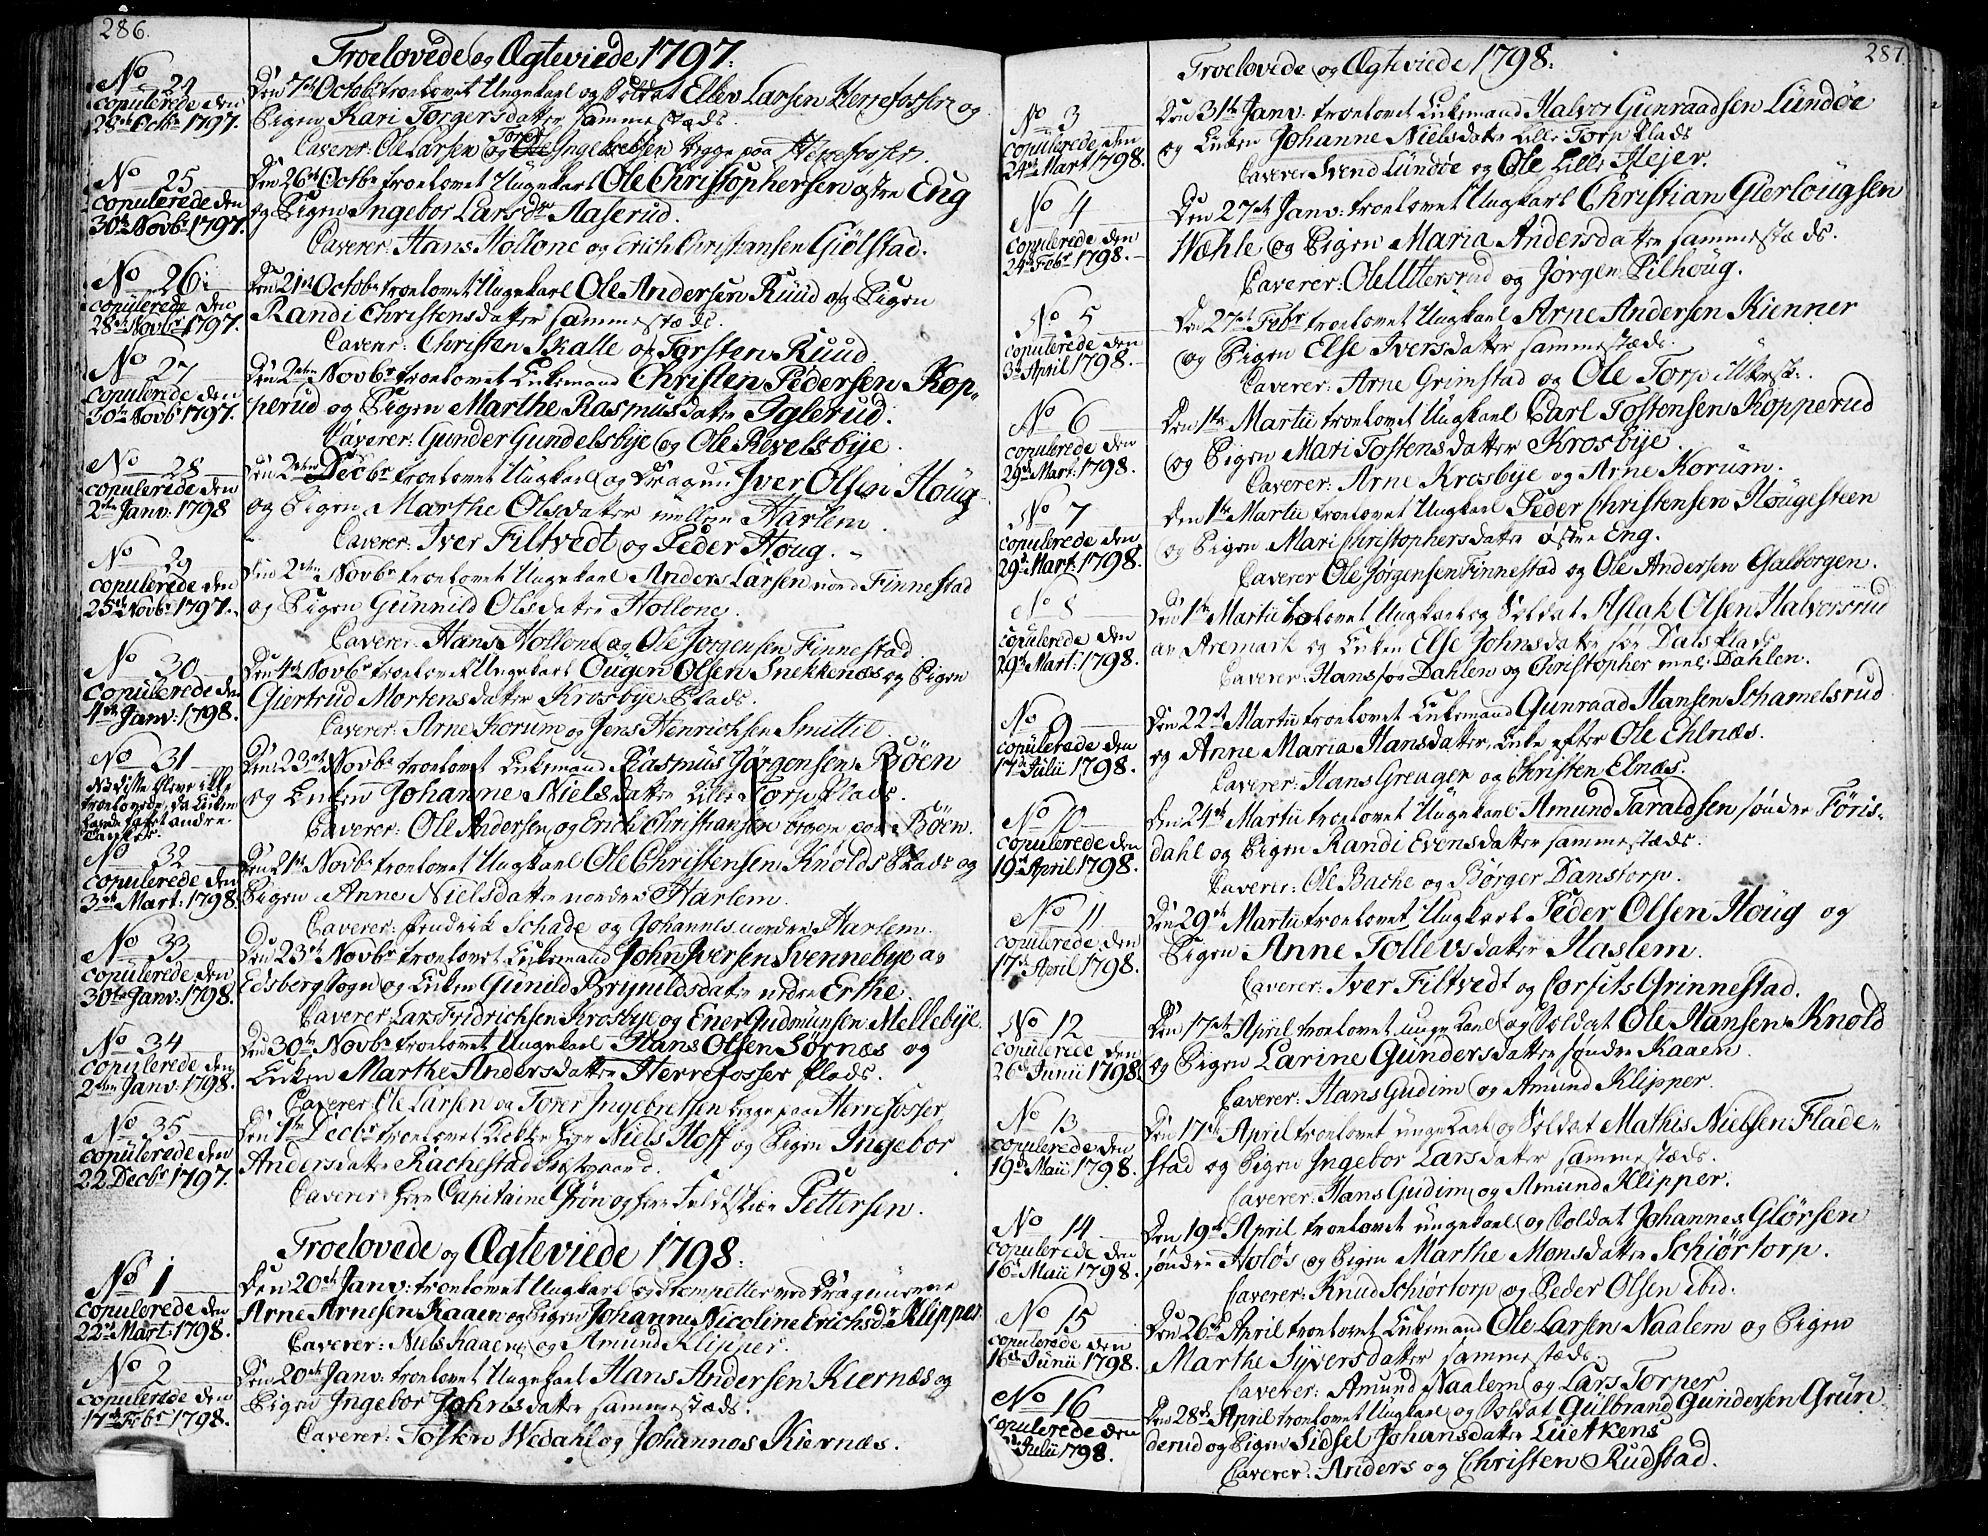 286.
Troelovede og Ægteviede 1797.
No 24
copulerede den
28de Octbr 1797.
Den 7de Octobr troelovet Ungekarl og Soldat Ellev Larsen Herrefosser og
Pigen Kari Torgersdatter sammestæds.
Caverer: Ole Larsen og Torer Ingebretsen begge paa Herrefosser.
No 25
copulerede den
30te Novbr 1797.
Den 26de Octbr troelovet Ungekarl Ole Christophersen østre Eng
og Pigen Ingebor Larsdr Aaserud.
Caverer: Hans Hollone og Erich Christiansen Giølstad.
No 26
copulerede den
28de Novbr 1797.
Den 21de Octobr troelovet Ungekarl Ole Andersen Ruud og Pigen
Randi Christensdatter sammestæds.
Caverer: Christen Skalle og Torsten Ruud.
No 27
copulerede den
30te Novbr 1797.
Den 2den Novbr troelovet Enkemand Christen Pedersen Kop-
perud og Pigen Marthe Rasmusdatter Iglerud.
Caverer: Gunder Gundelsbye og Ole Revelsbye.
No 28
copulerede den
2den Janv: 1798
Den 2den Decbr troelovet Ungkarl og Dragun Iver Olsen Houg
og Pigen Marthe Olsdatter mellem Harlem.
Caverer: Iver Filtvedt og Peder Houg.
No 29
copulerede den
25de Novbr 1797.
Den 2den Novbr troelovet Ungekarl Anders Larsen nord Finnestad
og Pigen Gunnild Olsdatter Hollone.
Caverer: Hans Hollone og Ole Jørgensen Finnestad.
No 30
copulerede den
4de Janv: 1798.
Den 4de Novbr troelovet Ungekarl Ougen Olsen Snekkenæs og Pigen
Giertrud Mortensdatter Krosbye Plads.
Caverer: Arne Korum og Jens Henrichsen Smittil.
No 31
NB diste bleve ikke
troelovede, da Enken
havde fattet andre
Tanker.
Den 23de Novbr troelovet Enkemand Rasmus Jørgensen Böen
og Enken Johanne Nielsdatter Lille Torp Plads.
Caverer: Ole Andersen og Erick Christiansen begge paa Böen.
No 32
copulerede den
3de Mart: 1798.
Den 21de Novbr troelovet Ungkarl Ole Christensen Knolds Plads og
Pigen Anne Nielsdatter nordre Harlem.
Caverer: Fredrik Schade og Johannes nordre Harlem.
No 33
copulerede den
30te Janv: 1798.
Den 23de Novbr troelovet Enkemand John Iversen Svennebye av
Edsberg Sogn og Enken Gunild Brynildsdatter nedre Erthe.
Caverer Lars Fridrichsen Krosbye og Ener Gudmunsen Mellebye.
No 34
copulerede den
2den Janv: 1798.
Den 30te Novbr troelovet Ungekarl Hans Olsen Sørnæs og
Enken Marthe Andersdatter Herrefosser Plads.
Caverer Ole Larsen og Torer Ingebretsen begge paa Herrefosser
No 35
copulerede den
22 Decbr 1797.
Den 1te Decbr troelovet Klokker Herr Niels Hoff og Pigen Ingebor
Andersdatter Rachestad Præstegaard.
Caverer: Herr Capitaine Grøn og Herr Feldskiær Pettersen.
Troelovede og Ægteviede 1798.
No 1
copulerede den
22de Mart: 1798.
Den 20de Janv: troelovet Ungkarl og Trompetter ved Dragunerne
Arne Arnesen Kaaen og Pigen Johanne Nicoline Erichsdr Klipper.
Caverer: Niels Kaaen og Amund Klipper.
No 2
copulerede den
17de Febr 1798.
Den 20de Janv. troelovet Ungekarl Hans Andersen Kiernæs og
Pigen Ingebor Johnsdatter sammestæds.
Caverer: Tosten Wedahl og Johannes Kiernæs.
287.
Troelovede og Ægteviede 1798.
No 3
copulerede den
24de Mart 1798.
Den 31te Janv. troelovet Enkemand Halvor Gunraadsen Lundøe
og Enken Johanne Nielsdatter Lille Torp Plads
Caverer Svend Lundøe og Ole Lille Hejer.
No 4
copulerede den
24de Febr 1798.
Den 27de Janv: troelovet Ungkarl Christian Gierlougsen
Wæhle og Pigen Maria Andersdatter sammestæds.
Caverer: Ole Uttersrud og Jørgen Pilhoug.
No 5
copulerede den
3de April 1798.
Den 27de Febr troelovet Ungkarl Arne Andersen Kienner
og Pigen Else Iversdatter sammestæds.
Caverer: Arne Grimstad og Ole Torp
No 6
copulerede den
29de Mart: 1798.
Den 1te Martii troelovet Ungkarl Carl Tostensen Kopperud
og Pigen Mari Tostensdatter Krosbye.
Caverer: Arne Krosbye og Arne Korum.
No 7
copulerede den
29de Mart: 1798.
Den 1te Martii troelovet Ungkarl Peder Christensen Hougesteen
og Pigen Mari Christophersdatter østre Eng.
Caverer Ole Jørgensen Finnestad og Ole Andersen Galborgen.
No 8
copulerede den
29de Mart: 1798.
Den 1te Martii trolovet Ungkarl og Soldat Aslak Olsen Halvorsrud
av Aremark og Enken Else Johnsdatter sør Dals Plads
Caverer: Hans sør Dahlen og Christopher mel: Dahlen.
No 9
copulerede den
17de Julii 1798.
Den 22de Martii troelovet Enkemand Gunraad Hansen Schamelsrud
og Anne Maria Hansdatter, Enke efter Ole Ehlnæs.
Caverer: Hans Greuger og Christen Elnæs.
No 10
copulerede den
19de April 1798.
Den 24de Martii troelovet Ungekarl Amund Taraldsen søndre Föris-
dahl og Pigen Randi Evensdatter sammestæds.
Caverer: Ole Bache og Børger Danstorp.
No 11
copulerede den
17de April 1798.
Den 29de Martii troelovet Ungkarl Peder Olsen Houg og
Pigen Anne Tollevsdatter Haslem.
Caverer: Iver Filtvedt og Corfits Grinnestad.
No 12
copulerede den
26de Junii 1798.
Den 17de April troelovet unge Karl og Soldat Ole Hansen Knold
og Pigen Larine Gundersdatter søndre Kaaen.
Caverer: Hans Gudim og Amund Klipper.
No 13
copulerede den
19de Maii 1798.
Den 17de April troelovet unge Karl og Soldat Mathis Nielsen Flade-
stad og Pigen Ingebor Larsdatter sammestæds.
Caverer: Hans Gudim og Amund Klipper.
No 14
copulerede den
16de Maii 1798.
Den 19de April troelovet ungekarl og Soldat Johannes Glörsen
søndre Holøs og Pigen Marthe Monsdatter Schiørtorp.
Caverer: Knud Schiørtorp og Peder Olsen ibid.
No 15
copulerede den
16de Junii 1798.
Den 26de April troelovet Enkemand Ole Larsen Naalem og Pigen
Marthe Syversdatter sammestæds.
Caverer: Amund Naalem og Lars Torper
No 16
copulerede den
Julii 1798.
Den 28de April troelovet Ungkarl og Soldat Gulbrand Gundersen Grün
derud og Pigen Sidsel Johansdatter Luetkens
Caverer: Anders og Christen Rudstad.